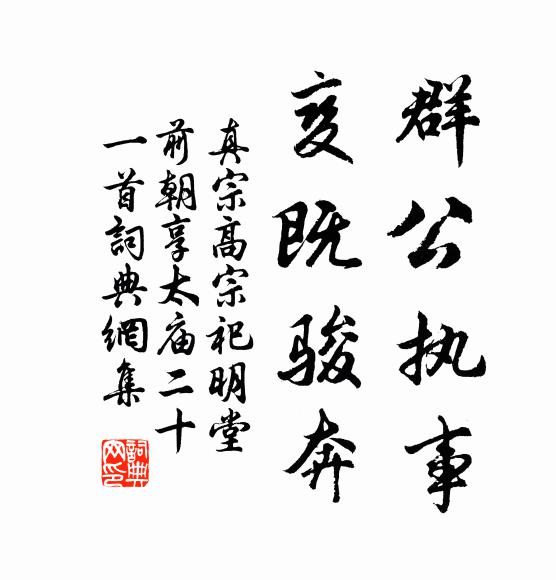 群公执事
变既骏奔
真宗高宗祀明堂
前朝享太庙二十
一首詞典網集
詞典网印